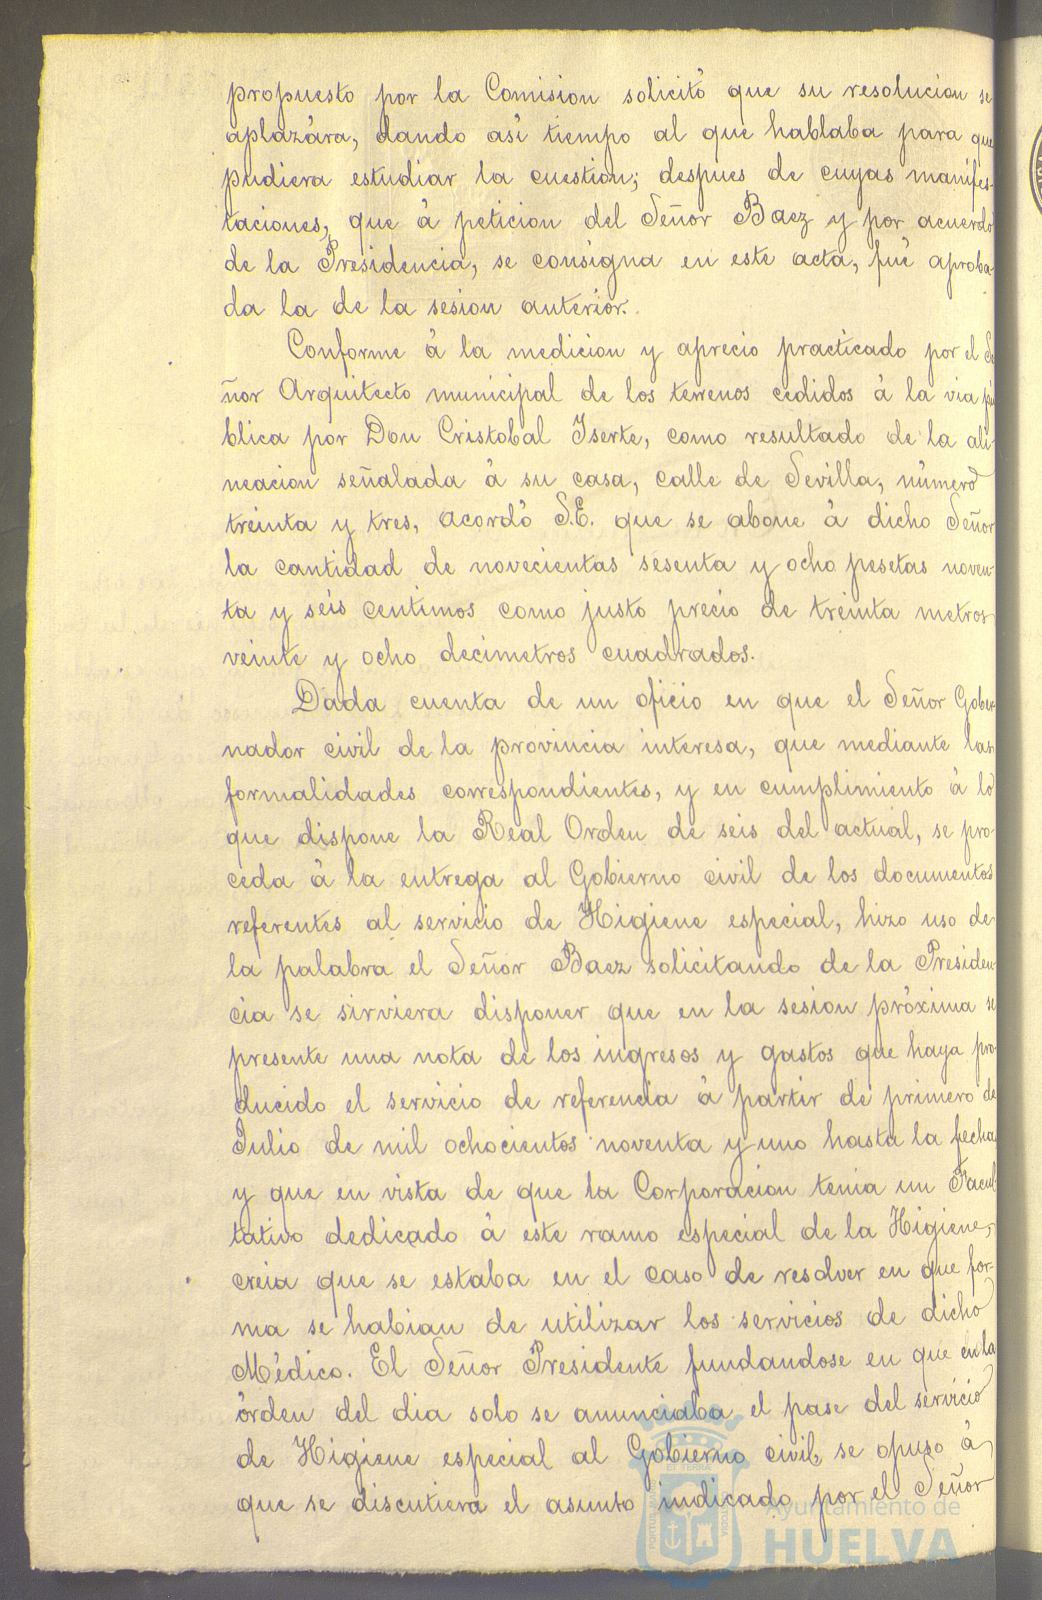 propuesto por la Comision solicitó que su resolucion se
aplazára, dando asi tiempo al que hablaba para que
pudiera estudiar la cuestion; despues de cuyas manifes-
taciones, que á peticion del Señor Baez y por acuerdo
de la Presidencia, se consigna en este acta, fué aproba-
da la de la sesion anterior.
Conforme á la medicion y aprecio practicado por el Se
ñor Arquitecto municipal de los terrenos cedidos á la via pú
blica por Don Cristobal Iserte, como resultado de la ali-
neacion señalada á su casa, calle de Sevilla, número
treinta y tres, acordó S.E. que se abone á dicho Señor
la cantidad de novecientas sesenta y ocho pesetas noven-
ta y seis centimos como justo precio de treinta metros
veinte y ocho decimetros cuadrados.
Dada cuenta de un oficio en que el Señor Gober-
nador civil de la provincia interesa, que mediante las
formalidades correspondientes, y en cumplimiento á lo
que dispone la Real Orden de seis del actual, se pro-
ceda á la entrega al Gobierno civil de los documentos
referentes al servicio de Higiene especial, hizo uso de
la palabra el Señor Baez solicitando de la Presiden-
cia se sirviera disponer que en la sesion próxima se
presente una nota de los ingresos y gastos que haya pro-
ducido el servicio de referencia á partir de primero de
Julio de mil ochocientos noventa y uno hasta la fecha
y que en vista de que la Corporacion tenia un Facul-
tativo dedicado á este ramo especial de la Higiene,
creia que se estaba en el caso de resolver en que for-
ma se habian de utilizar los servicios de dicho
Médico. El Señor Presidente fundandose en que en la
órden del dia solo se anunciaba el pase del servicio
de Higiene especial al Gobierno civil, se opuso á
que se discutiera el asunto indicado por el Señor
Ayuntamiento de
HUELVA